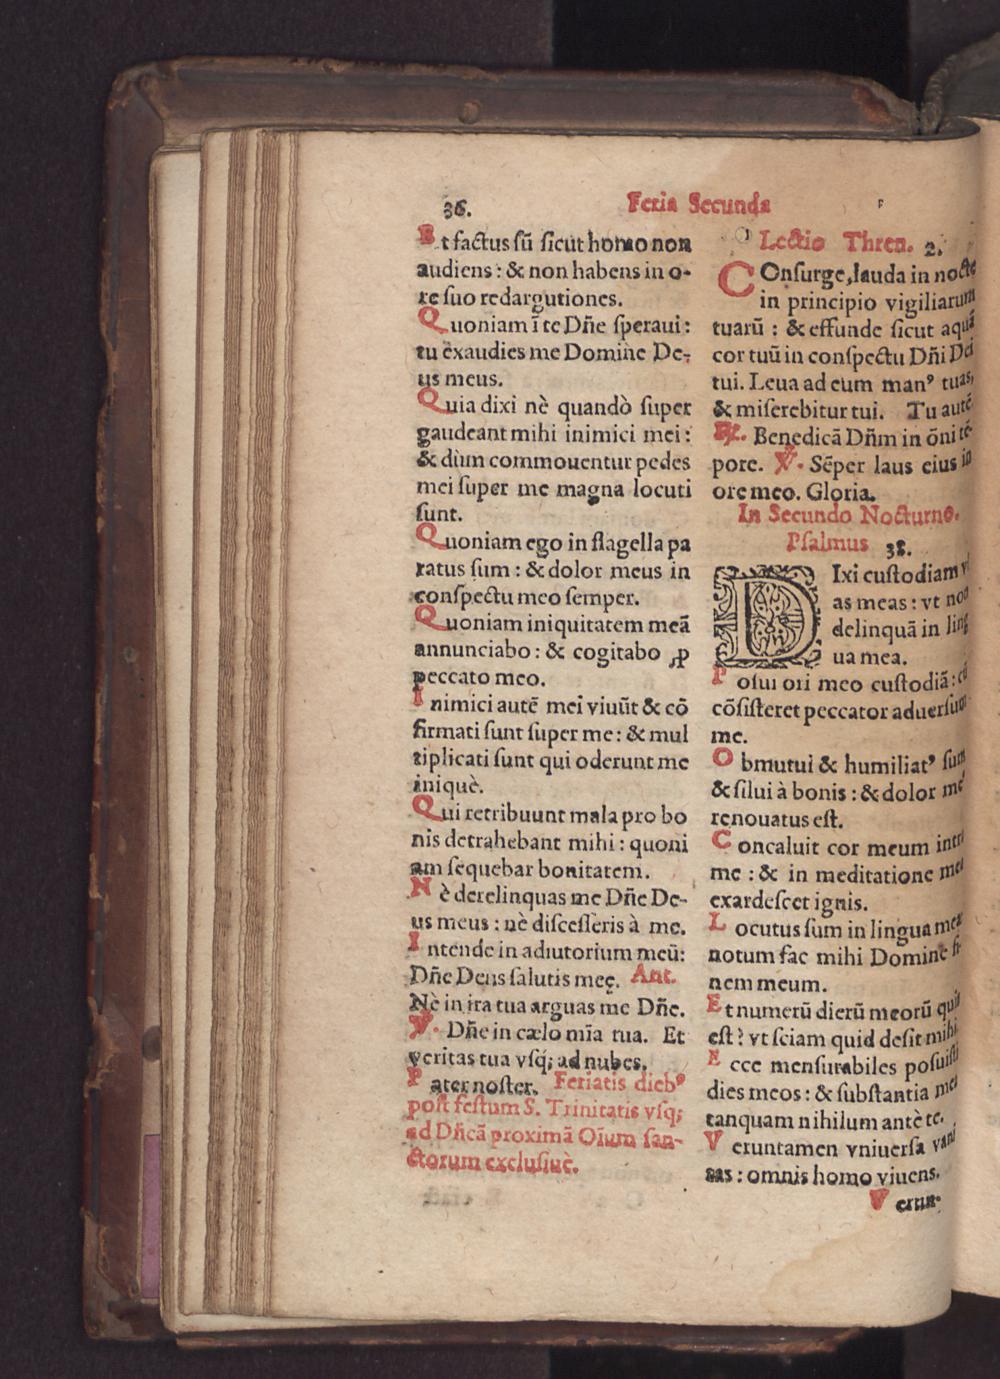 36.
Feria Secunda
Et factus sũ sicut homo non
audiens : & non habens in o-
re suo redargutiones.
Quoniam ĩ te Dñe speraui :
tu exaudies me Domine De-
us meus.
Quia dixi nè quandò super
gaudeant mihi inimici mei :
& dùm commouentur pedes
mei super me magna locuti
sunt.
Quoniam ego in flagella pa
ratus sum : & dolor meus in
conspectu meo semper.
Quoniam iniquitatem meã
annunciabo : & cogitabo ꝓ
peccato meo.
Inimici autẽ mei viuũt & cõ
firmati sunt super me : & mul
tiplicati sunt qui oderunt me
iniquè.
Qui retribuunt mala pro bo
nis detrahebant mihi : quoni
am sequebar bonitatem.
Nè derelinquas me Dñe De-
us meus : nè discesseris à me.
Intende in adiutorium meũ :
Dñe Deus salutis meę. Ant.
Nè in ira tua arguas me Dñe.
℣. Dñe in cælo mĩa tua. Et
veritas tua vsq; ad nubes.
Pater noster. Feriatis diebꝰ
post festum S. Trinitatis vsq;
ad Dñcã proximã Oĩum san-
ctorum exclusiuè.
Lectio Thren. 2.
COnsurge, lauda in nocte
in principio vigiliarum
tuarũ : & effunde sicut aquã
cor tuũ in conspectu Dñi Dei
tui. Leua ad eum manꝰ tuas,
& miserebitur tui. Tu autẽ.
℟. Benedicã Dñm in õni tẽ-
pore. ℣. Sẽper laus eius in
ore meo. Gloria.
In Secundo Nocturno.
Psalmus 38.
DIxi custodiam vi
as meas : vt non
delinquã in ling
ua mea.
Posui ori meo custodiã : cũ
cõsisteret peccator aduersum
me.
Obmutui & humiliatꝰ sum
& silui à bonis : & dolor meꝰ
renouatus est.
Concaluit cor meum intra
me : & in meditatione mea
exardescet ignis.
Locutus sum in lingua mea
notum fac mihi Domine fi
nem meum.
Et numerũ dierũ meorũ quis
est ? vt sciam quid desit mihi.
Ecce mensurabiles posuisti
dies meos : & substantia mea
tanquam nihilum antè te.
Veruntamen vniuersa vani
tas : omnis homo viuens.
Verun-